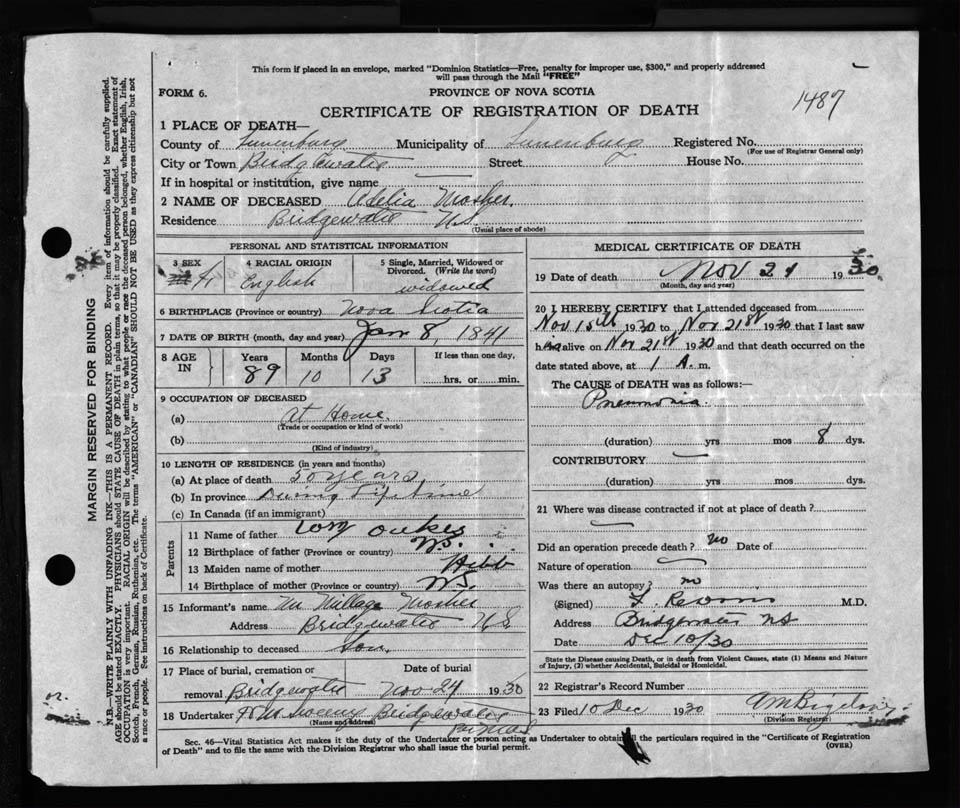 This form if placed in an envelope, marked "Dominion Statistics—Free, penalty for improper use, $300," and properly addressed
will pass through the Mail "FREE"
FORM 6.
PROVINCE OF NOVA SCOTIA
1487
CERTIFICATE OF REGISTRATION OF DEATH
1 PLACE OF DEATH—
County of Lunenburg Municipality of Lunenburg Registered No.
(For use of Registrar General only)
City or Town Bridgewater Street House No.
If in hospital or institution, give name
2 NAME OF DECEASED Adelia Mosher
Residence Bridgewater N.S.
(Usual place of abode)
PERSONAL AND STATISTICAL INFORMATION
3 SEX F
4 RACIAL ORIGIN English
5 Single, Married, Widowed or Divorced. (Write the word) widowed
6 BIRTHPLACE (Province or country) Nova Scotia
7 DATE OF BIRTH (month, day and year) Jan 8, 1841
8 AGE IN Years 89 Months 10 Days 13 If less than one day, hrs. or min.
9 OCCUPATION OF DECEASED
(a) At Home
(Trade or occupation or kind of work)
(b)
(Kind of industry)
10 LENGTH OF RESIDENCE (in years and months)
(a) At place of death 50 years
(b) In province During Lifetime
(c) In Canada (if an immigrant)
Parents
11 Name of father Oakes
12 Birthplace of father (Province or country) N.S.
13 Maiden name of mother Hebb
14 Birthplace of mother (Province or country) N.S.
15 Informant's name Mr Millage Mosher
Address Bridgewater N S
16 Relationship to deceased Son
17 Place of burial, cremation or Date of burial
removal Bridgewater Nov 24 1930
18 Undertaker Bridgewater
(Name and address)
MEDICAL CERTIFICATE OF DEATH
19 Date of death Nov 21 1930
(Month, day and year)
20 I HEREBY CERTIFY that I attended deceased from
Nov 15th 1930 to Nov 21st 1930 that I last saw
her alive on Nov 21st 1930 and that death occurred on the
date stated above, at 1 A. m.
The CAUSE OF DEATH was as follows:
Pneumonia
(duration) yrs mos 8 dys.
CONTRIBUTORY
(duration) yrs mos dys.
21 Where was disease contracted if not at place of death?
Did an operation precede death? no Date of
Nature of operation
Was there an autopsy? no
(Signed) M.D.
Address Bridgewater NS
Date Dec 10/30
State the Disease causing Death, or in death from Violent Causes, state (1) Means and
Nature of Injury, (2) whether Accidental, Suicidal or Homicidal.
22 Registrar's Record Number
23 Filed 10 Dec 1930
(Division Registrar)
Sec. 46—Vital Statistics Act makes it the duty of the Undertaker or person acting as Undertaker to obtain all the particulars required in the "Certificate of Registration
of Death" and to file the same with the Division Registrar who shall issue the burial permit.
(OVER)
MARGIN RESERVED FOR BINDING
N.B.—WRITE PLAINLY WITH UNFADING INK—THIS IS A PERMANENT RECORD. Every item of information should be carefully supplied.
AGE should be stated EXACTLY. PHYSICIANS should STATE CAUSE OF DEATH in plain terms, so that it may be properly classified. Exact statement of
OCCUPATION is very important. RACIAL ORIGIN will be described by stating to what people or race the deceased person belonged, whether English, Irish,
Scotch, French, German, Russian, Ruthenian, etc. The terms "AMERICAN" or "CANADIAN" SHOULD NOT BE USED as they express citizenship but not
a race or people. See instructions on back of Certificate.